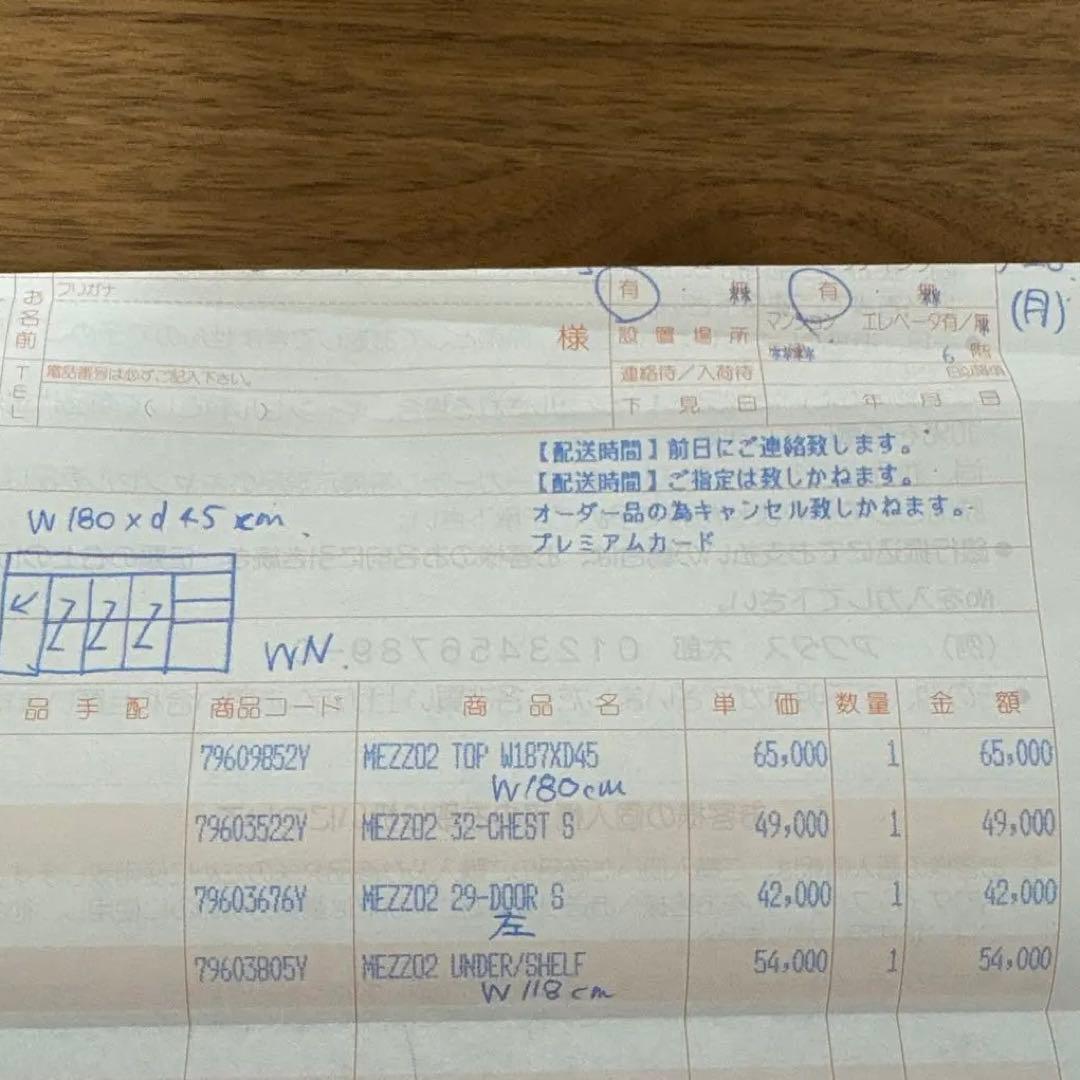 お名前
フリガナ
様
有 無
有 無
(月)
設置場所
マンション エレベータ有/無
6 階
TEL
電話番号は必ずご記入下さい。
( )
連絡待/入荷待
下見日
年 月 日
【配送時間】前日にご連絡致します。
【配送時間】ご指定は致しかねます。
オーダー品の為キャンセル致しかねます。
プレミアムカード
W180×d45cm
WN.
品手配 商品コード 商品名 単価 数量 金額
79609852Y MEZZO2 TOP W187XD45 65,000 1 65,000
W180cm
79603522Y MEZZO2 32-CHEST S 49,000 1 49,000
79603676Y MEZZO2 29-DOOR S 42,000 1 42,000
左
79603805Y MEZZO2 UNDER/SHELF 54,000 1 54,000
W118cm